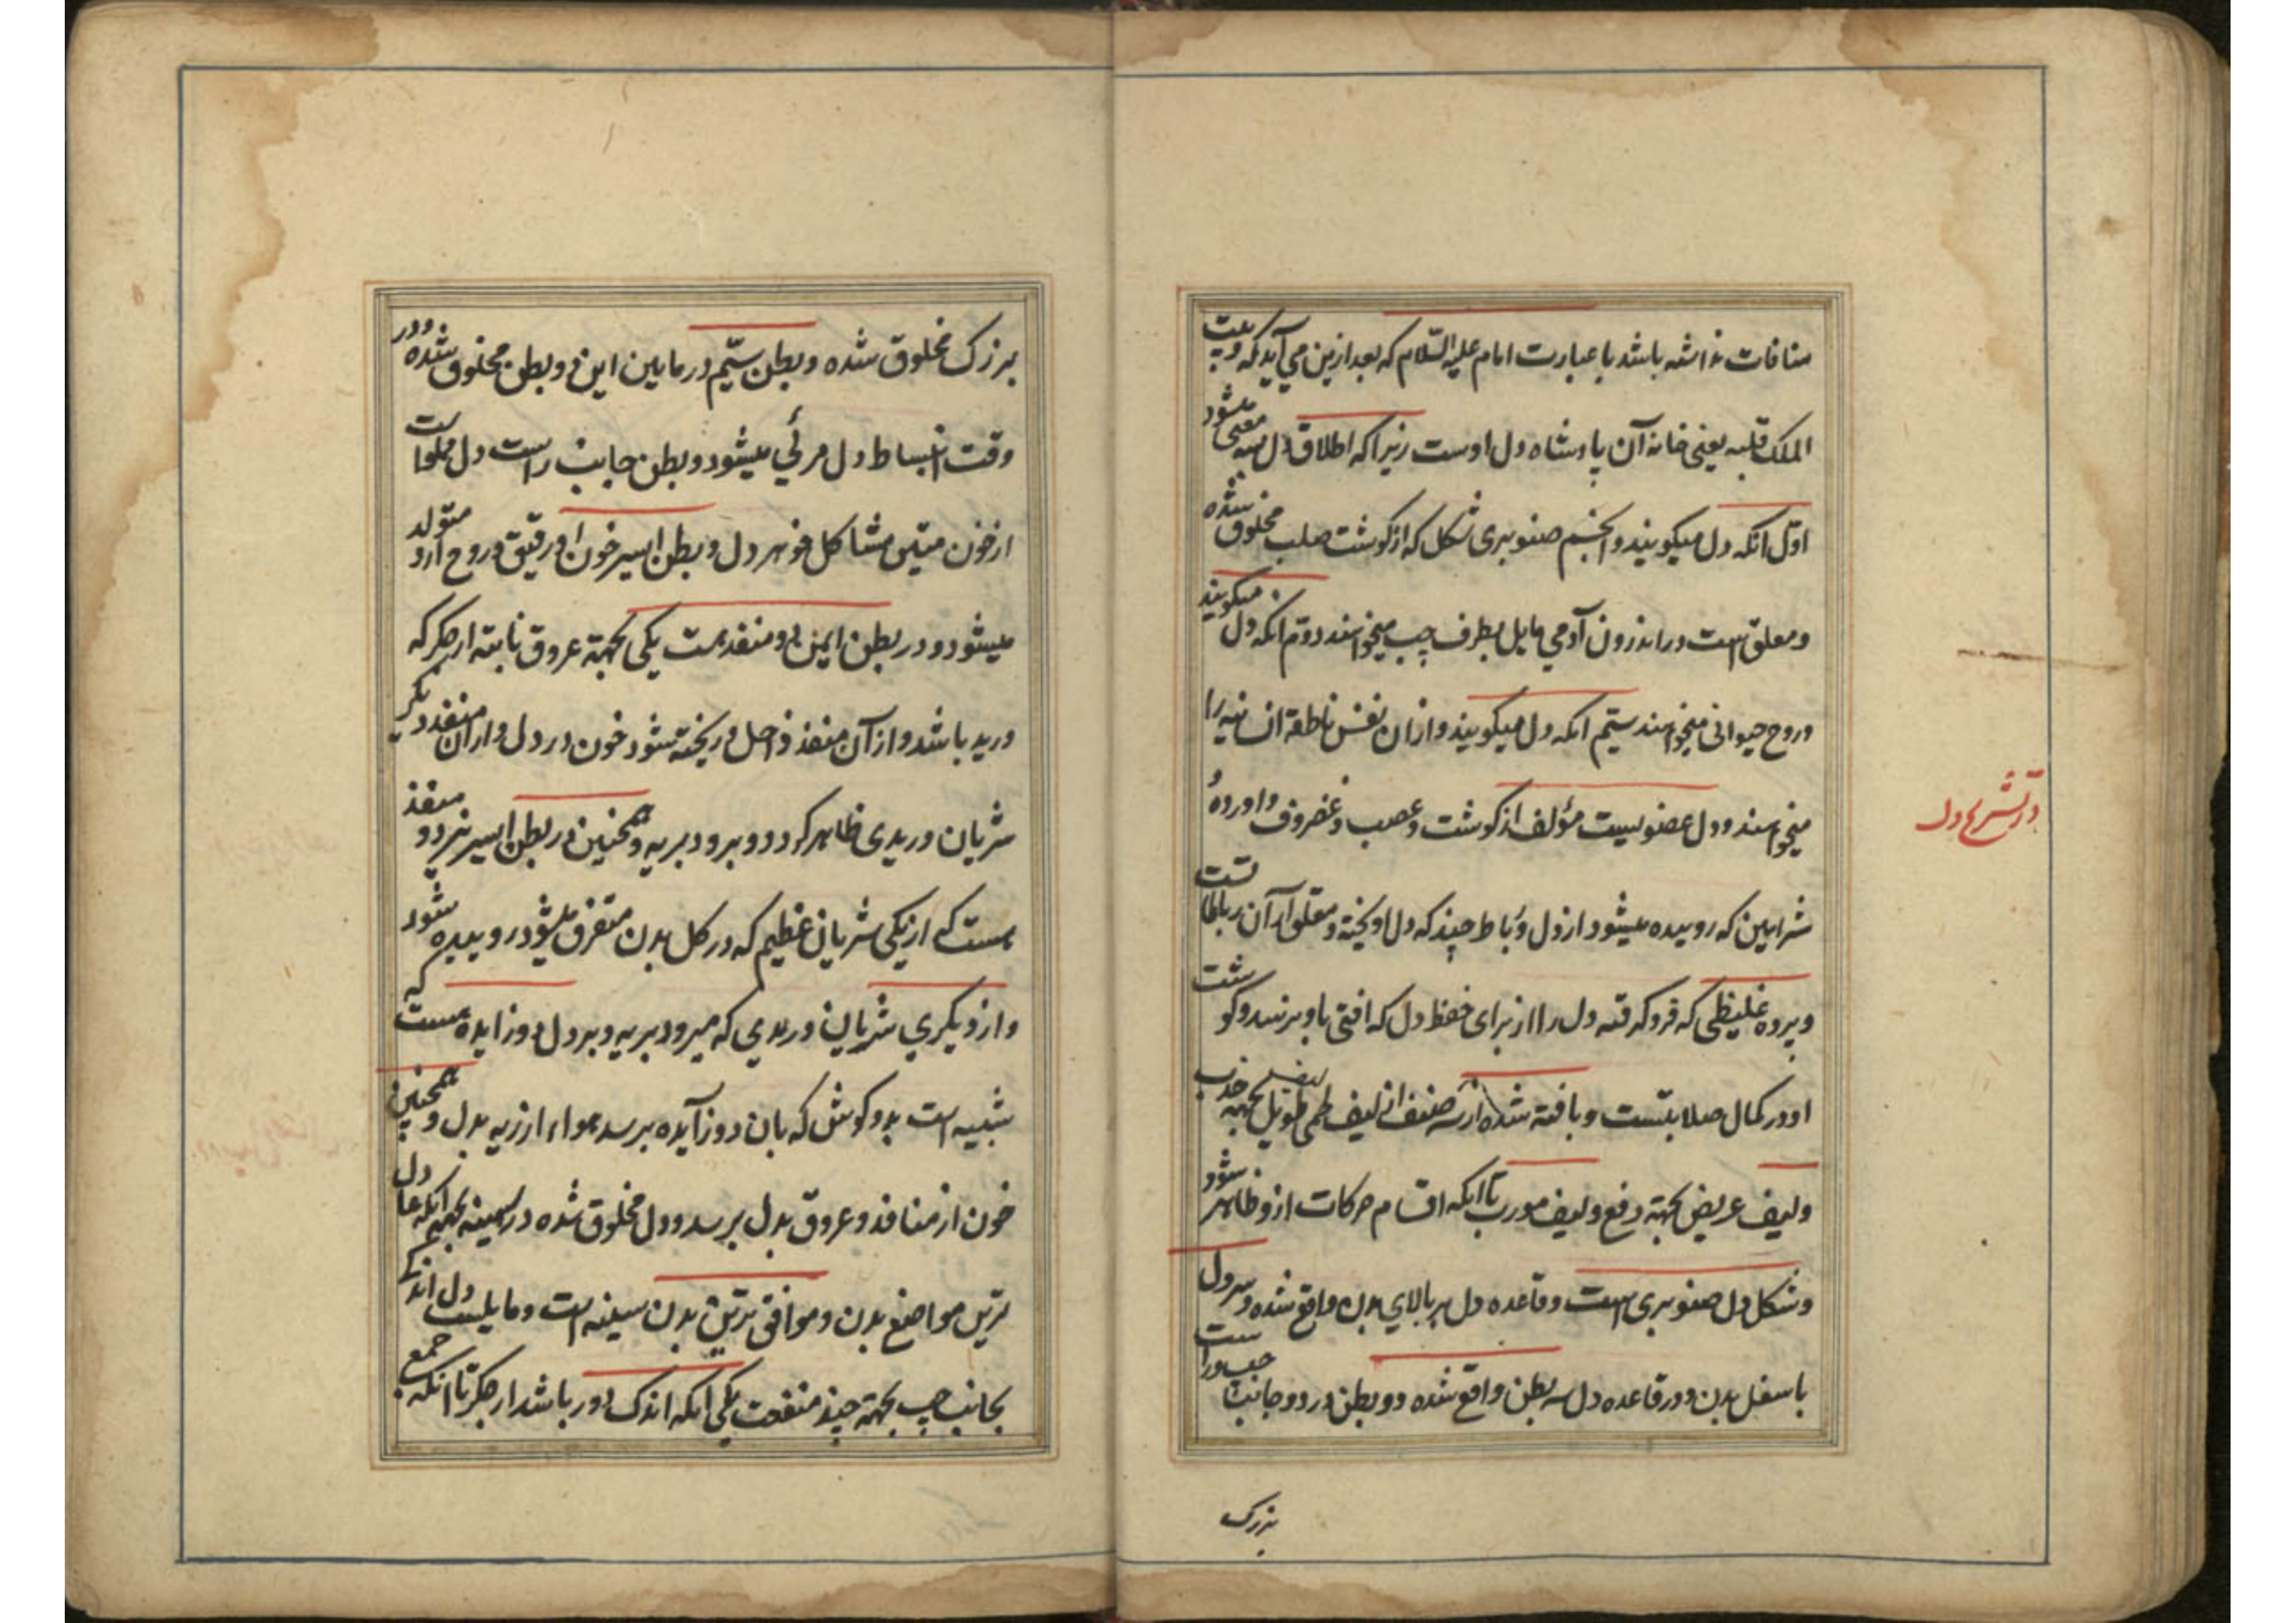 منافات نداشته باشد با عبارت امام علیه السّلام که بعد ازین می آید که و بیت
الملک قلبه یعنی خانه آن پادشاه دل اوست زیرا که اطلاق دل بسه معنی میشود
اوّل انکه دل میکویند و انجسم صنوبری شکل که از کوشت صلب مخلوق شده
و معلق است در اندرون آدمی مایل بطرف چپ میخواهند دوّم انکه دل میکویند
و روح حیوانی میخواهند سیّم انکه دل میکویند و ازان نفس ناطقهٔ انسانیه را
میخواهند و دل عضویست مؤلف از کوشت و عصب و غضروف و اوردهٔ
در تشریح دل
شرایین که روییده میشود از دل و رباط چند که دل اویخته و معلق از آن رباطاتست
و پردهٔ غلیظی که فرو کرفته دل را از برای حفظ دل که افتی باو نرسد و کوشت
او در کمال صلابتست و بافته شده از سه صنف از لیف لحمی لیف طویل بجهة جذب
و لیف عریض بجهة دفع و لیف مورب تا انکه اقسام حرکات ازو ظاهر شود
و شکل دل صنوبری است و قاعده دل ببر بالای بدن واقع شده و سر دل
باسفل بدن و در قاعده دل سه بطن واقع شده دو بطن در دو جانب چپ و راست
بزرک
بزرک مخلوق شده و بطن سیّم در مابین این دو بطن مخلوق شده و در
وقت انبساط دل مرئی میشود و بطن جانب راست دل مملو است
از خون متین مشاکل جوهر دل و بطن ایسر خون او رقیق و روح ازو متولد
میشود و در بطن ایمن دو منفذ هست یکی بجهة عروق نابته از جکر که
ورید باشد و از آن منفذ داخل و ریخته شود خون در دل و از ان منفذ دیکر
شریان وریدی ظاهر کردد و برود بریه و همچنین در بطن ایسر نیز دو منفذ
هست که از یکی شریان عظیم که در کل بدن متفرق میشود روییده شود
و از دیکری شریان وریدی که میرود بریه و بر دل دو زایده هست که
شبیه است بدو کوش که بان دو زآیده برسد هواء از ریه بدل و همچنین
خون از منافذ و عروق بدل برسد و دل مخلوق شده در سینه بجهة انکه عادل
ترین مواضع بدن و موافق ترین بدن سینه است و مایلست دل اندکی
بجانب چپ بجهة چند منفعت یکی انکه اندک دور باشد از جکر تا انکه جمع